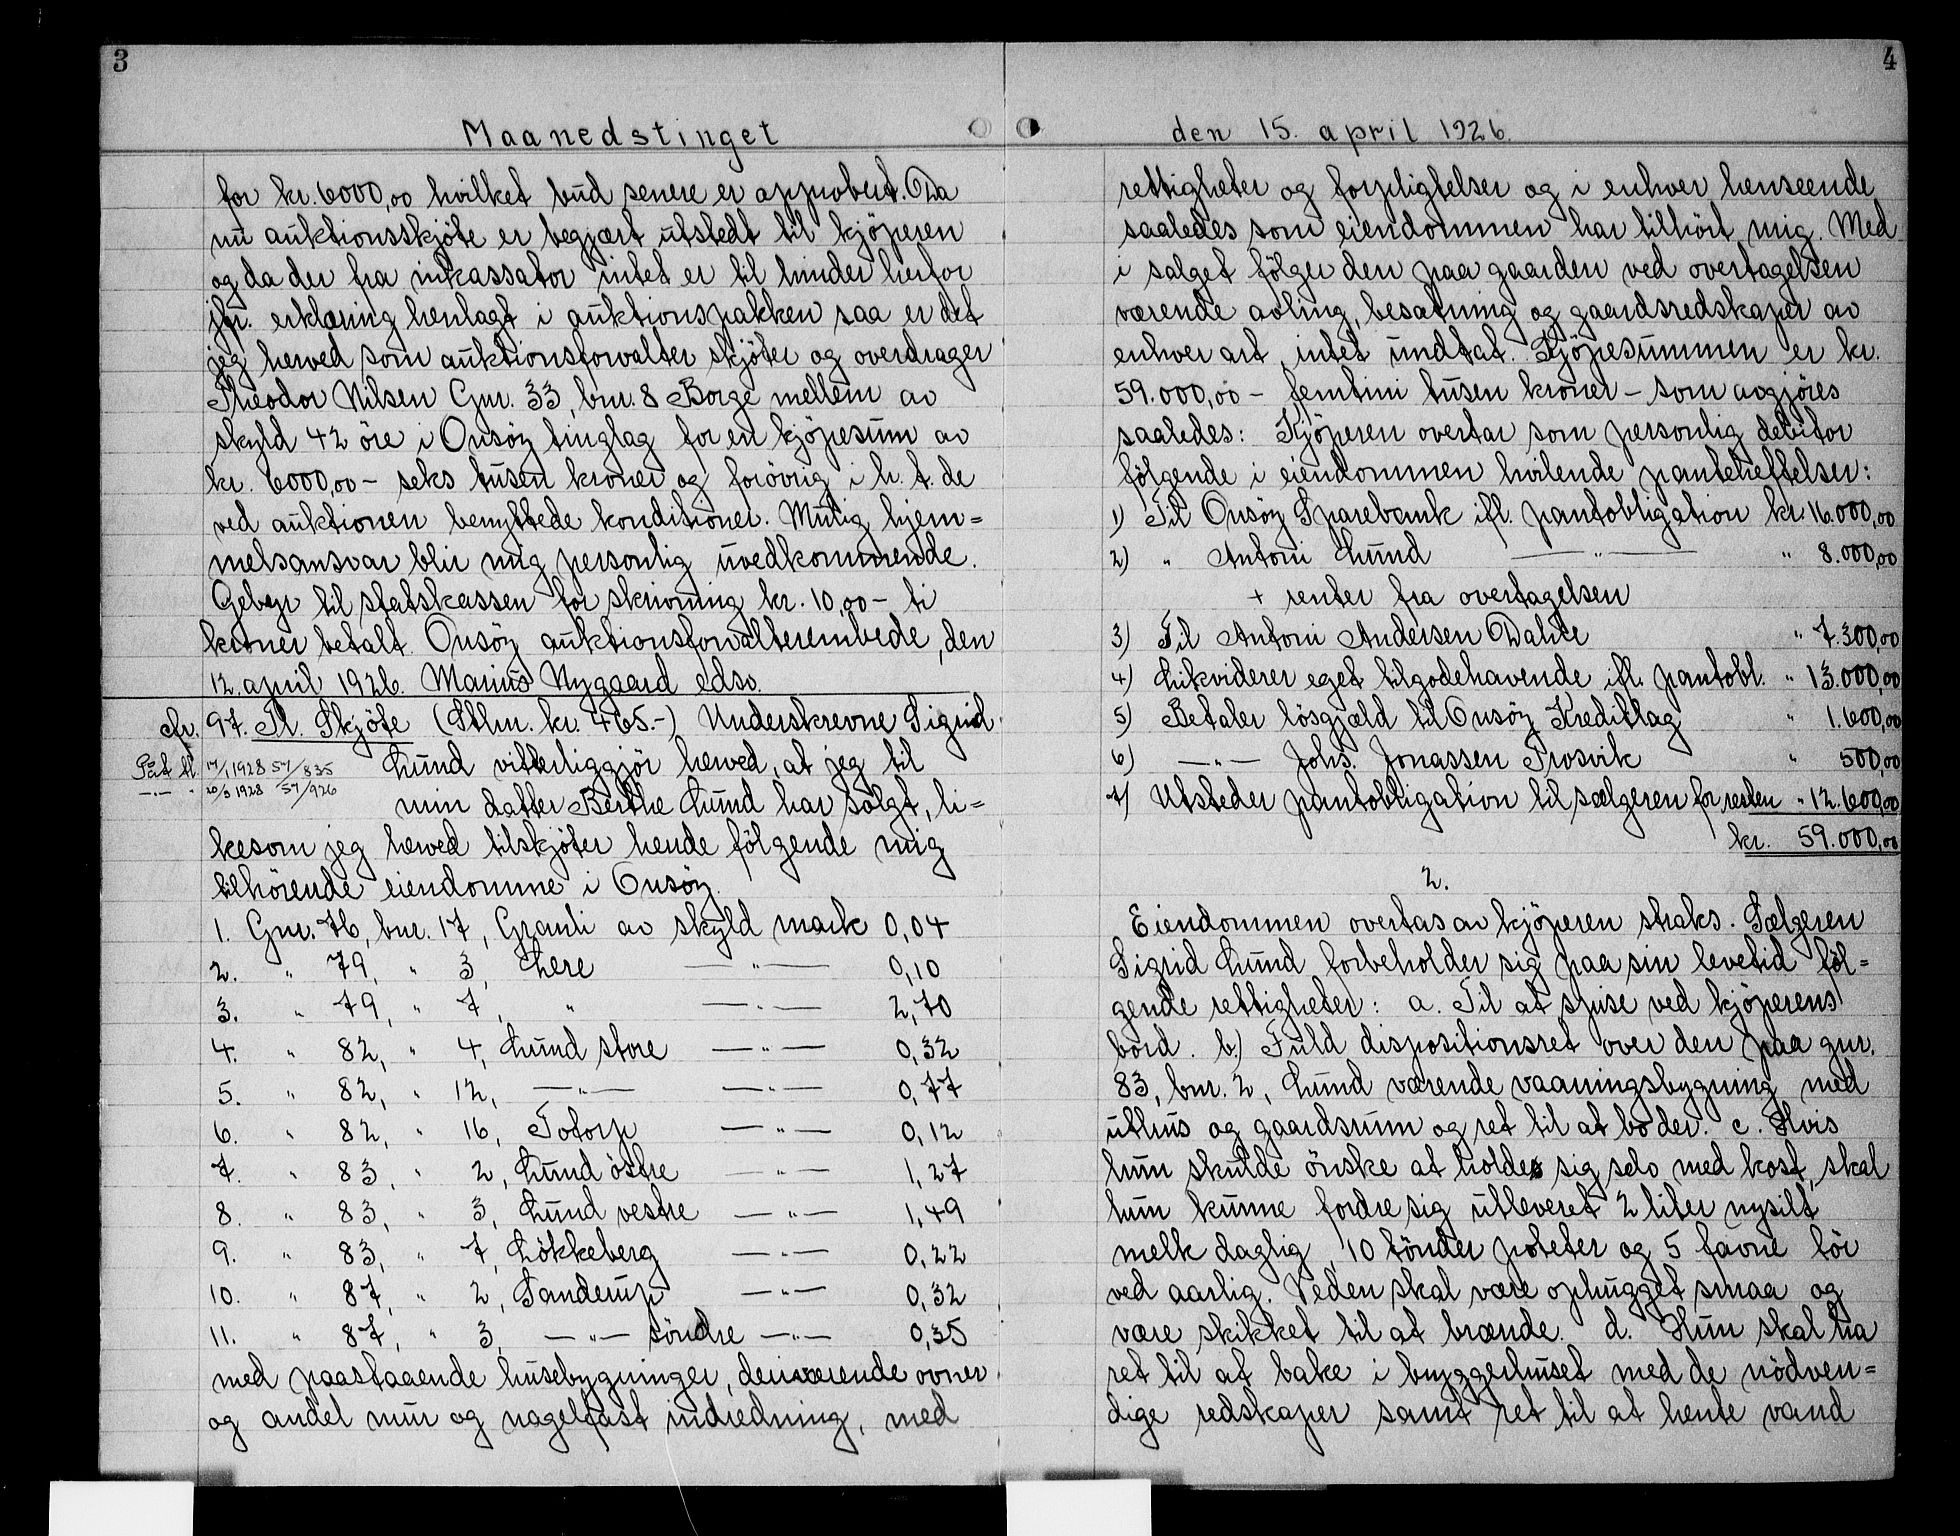 3
Maanedstinget
for kr. 6000,00 hvilket bud senere er approbert. Da
nu auktionsskjöte er begjært utstedt til kjöperen
og da der fra inkassator intet er til hinder herfor
jfr. erklæring henlagt i auktionspakken saa er det
jeg herved som auktionsforvalter skjöter og overdrager
Theodor Nilsen Gnr. 33, bnr. 8 Borge mellem av
skyld 42 öre i Onsöy tinglag for en kjöpesum av
kr. 6000,00 - seks tusen kroner og forövrig i h. t. de
ved auktionen benyttede konditioner. Mulig hjem=
melsansvar blir mig personlig uvedkommende.
Gebyr til statskassen for skrivning kr. 10,00 - ti
kroner betalt. Onsöy auktionsforvalterembede, den
12. april 1926. Marius Nygaard edsv.
cfr. 97. Tl. Skjöte (Sthm. kr. 465.-) Underskrevne Sigrid
Påt tl. 17/1 1928 57/835 Lund vitterliggjör herved, at jeg til
—"— " 20/3 1928 57/926 min datter Berthe Lund har solgt, li=
kesom jeg herved tilskjöter hende fölgende mig
tilhörende eiendomme i Onsöy.
1. Gnr. 76, bnr. 17, Granli av skyld mark 0,04
2. " 79, " 3, Lere —"— 0,10
3. " 79, " 7, " —"— 2,70
4. " 82, " 4, Lund store —"— 0,32
5. " 82, " 12, —"— —"— 0,77
6. " 82, " 16, Totorp —"— 0,12
7. " 83, " 2, Lund östre —"— 1,27
8. " 83, " 3, Lund vestre —"— 1,49
9. " 83, " 7, Lökkeberg —"— 0,22
10. " 87, " 2, Tanderup —"— 0,32
11. " 87, " 3, —"— söndre —"— 0,35
med paastaaende husebygninger, deriværende ovner
og andel mur og nagelfast indredning, med
4
den 15. april 1926.
rettigheter og forpligtelser og i enhver henseende
saaledes som eiendommen har tilhört mig. Med
i salget fölger den paa gaarden ved overtagelsen
værende avling, besætning og gaardsredskaper av
enhver art, intet undtat. Kjöpesummen er kr.
59.000,00 - femtini tusen kroner - som avgjöres
saaledes: Kjöperen overtar som personlig debitor
fölgende i eiendommen hvilende panteheftelser:
1) Til Onsöy Sparebank ifl. pantobligation kr. 16.000,00
2) " Antoni Lund —"— " 8.000,00
+ renter fra overtagelsen
3) Til Antoni Andersen Dahle " 7.300,00
4) Likviderer eget tilgodehavende ifl. pantobl. " 13.000,00
5) Betaler lösgjæld til Onsöy Kreditlag " 1.600,00
6) —"— Johs. Jonassen Trosvik " 500,00
7) Utsteder pantobligation til sælgeren for resten " 12.600,00
kr. 59.000,00
2.
Eiendommen overtas av kjöperen straks. Sælgeren
Sigrid Lund forbeholder sig paa sin levetid föl=
gende rettigheter: a. Til at spise ved kjöperens
bord. b.) Fuld dispositionsret over den paa gnr.
83, bnr. 2, Lund værende vaaningsbygning med
uthus og gaardsrum og ret til at bo der. c. Hvis
hun skulde önske at holde sig selv med kost, skal
hun kunne fordre sig utleveret 2 liter nysilt
melk daglig, 10 tönder poteter og 5 favne tör
ved aarlig. Veden skal være ophugget smaa og
være skikket til at brænde. d. Hun skal ha
ret til at bake i bryggerhuset med de nödven=
dige redskaper samt ret til at hente vand